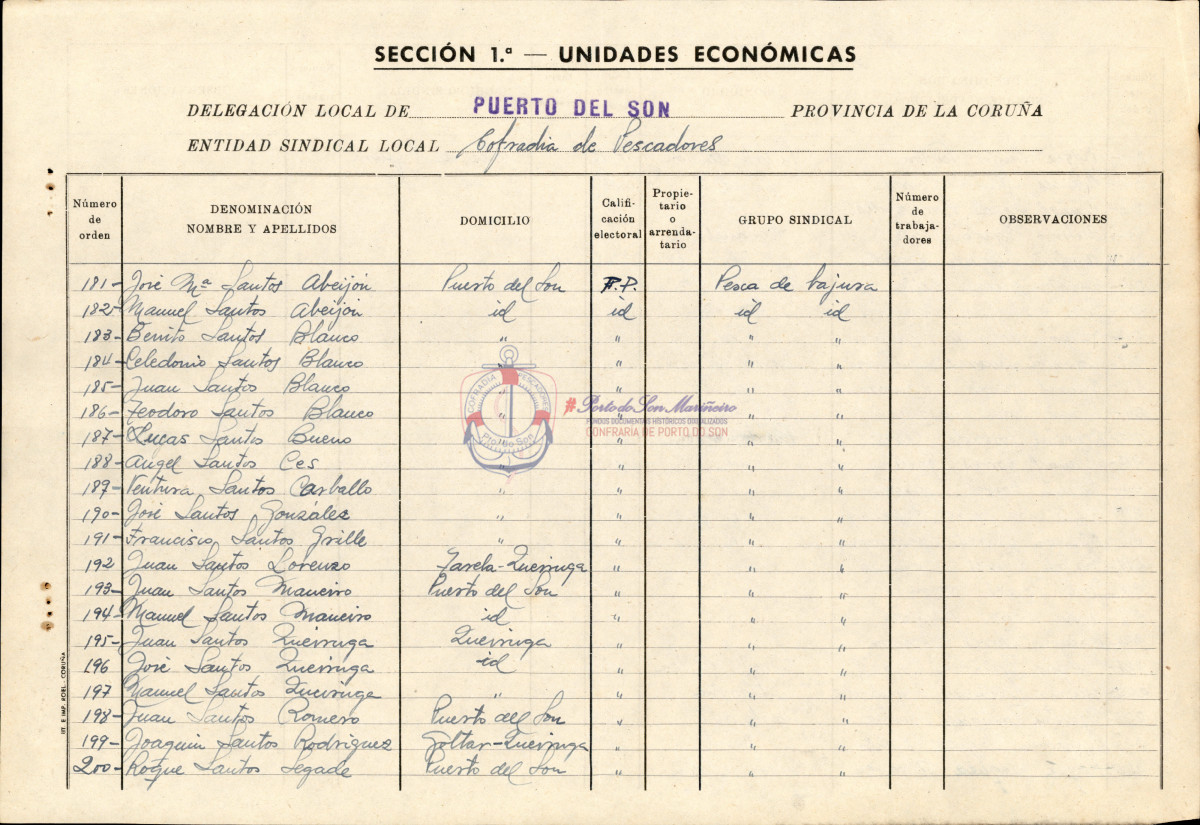 SECCIÓN 1.ª — UNIDADES ECONÓMICAS
DELEGACIÓN LOCAL DE PUERTO DEL SON PROVINCIA DE LA CORUÑA
ENTIDAD SINDICAL LOCAL Cofradia de Pescadores
Número de orden DENOMINACIÓN NOMBRE Y APELLIDOS DOMICILIO Califi- cación electoral Propie- tario o arrenda- tario GRUPO SINDICAL Número de trabaja- dores OBSERVACIONES
181- José Mª Santos Abeijón Puerto del Son P.P. Pesca de bajura
182- Manuel Santos Abeijón id id id id
183- Benito Santos Blanco " " " "
184- Celedonio Santos Blanco " " " "
185- Juan Santos Blanco " " " "
186- Teodoro Santos Blanco " " " "
187- Lucas Santos Bueno " " " "
188- Angel Santos Ces " " " "
189- Ventura Santos Carballo " " " "
190- José Santos González " " " "
191- Francisco Santos Grille " " " "
192 Juan Santos Lorenzo Queiruga " " "
193- Juan Santos Maneiro Puerto del Son " " "
194- Manuel Santos Maneiro id " " "
195- Juan Santos Queiruga Queiruga " " "
196 José Santos Queiruga id " " "
197 Manuel Santos Queiruga " " " "
198- Juan Santos Romero Puerto del Son " " "
199- Joaquin Santos Rodriguez Goltar-Queiruga " " "
200- Roque Santos Segade Puerto del Son " " "
COFRADIA PESCADORES
Pto. do Son
#Porto do Son Mariñeiro
FONDOS DOCUMENTAIS HISTÓRICOS DIXITALIZADOS
CONFRARÍA DE PORTO DO SON
IMP. ROEL.-CORUÑA